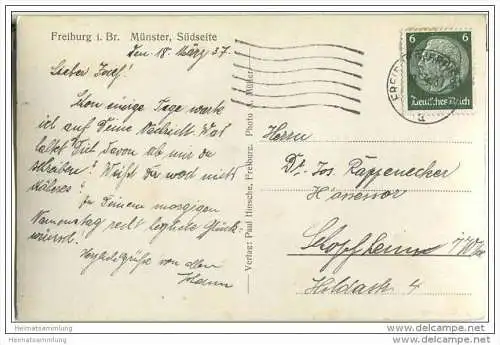 Freiburg i. Br. Münster, Südseite
Den 18. März 37.
Lieber Josef!
Schon einige Tage warte
ich auf Deine Nachricht. Was
haltet Dich davon ab mir zu
schreiben? Weißt Du noch nicht
näheres?
Zu Deinem morgigen
Namenstag recht herzliche Glück-
wünsche!
Herzliche Grüße von allen
Verlag: Paul Hinsche, Freiburg. Photo A. Müller
6 6
Deutsches Reich
Herrn
Dr. Jos. Rappenecker
Assessor
Schopfheim i/W
4
Heimatsammlung
Heimatsammlung
www.delcampe.net